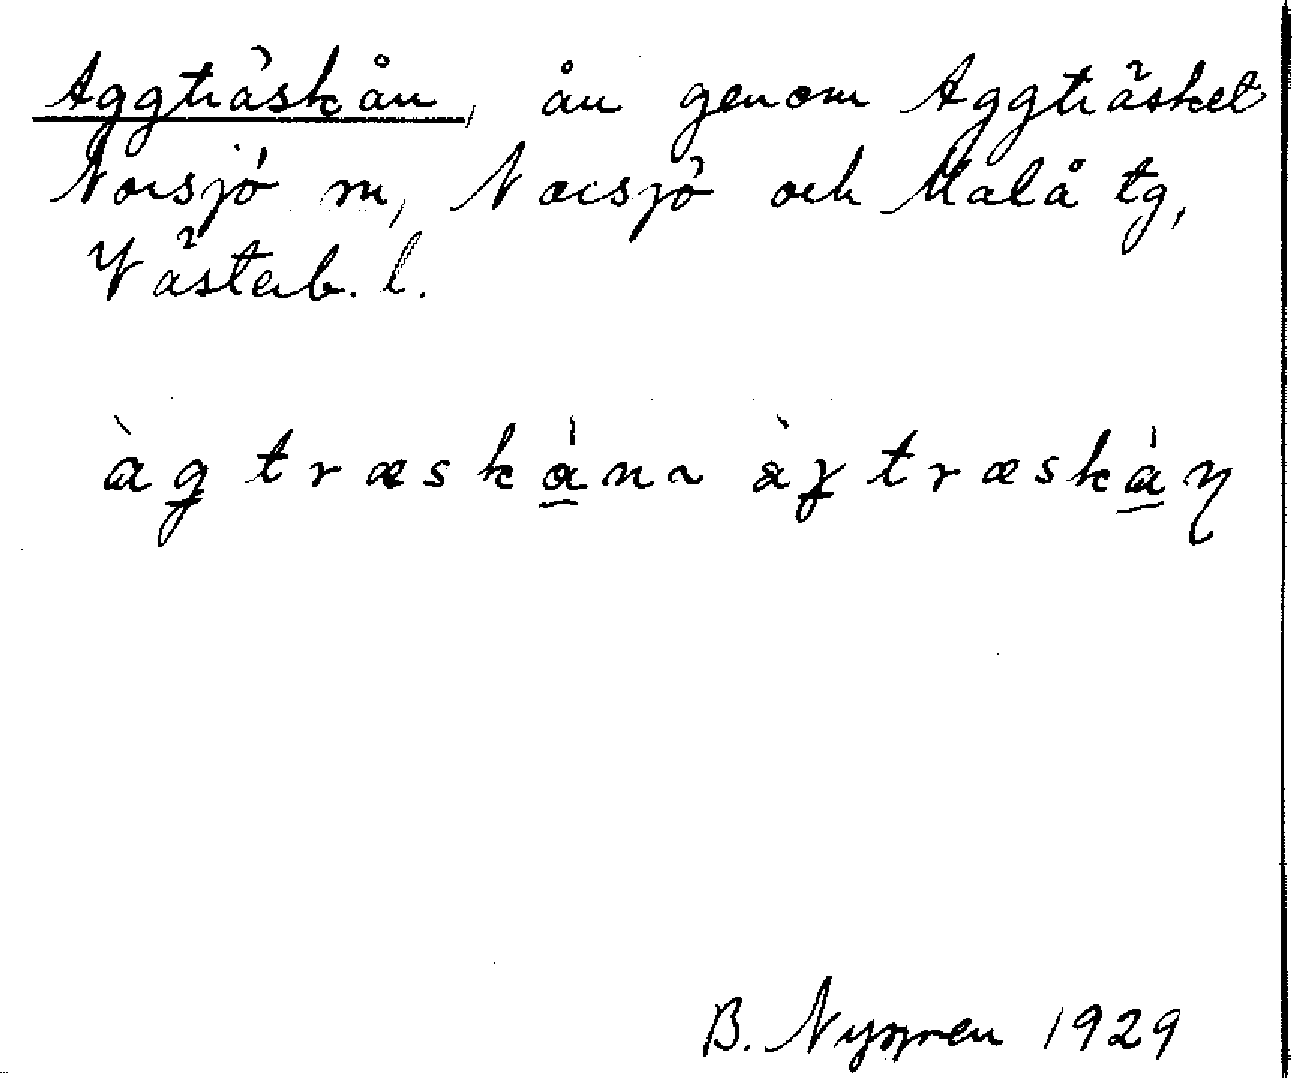 Aggträskån, ån genom Aggträsket
Norsjö sn, Norsjö och Malå tg,
Västerb. l.
àgträskå̀na àgträskå̀n
B. Nygren 1929